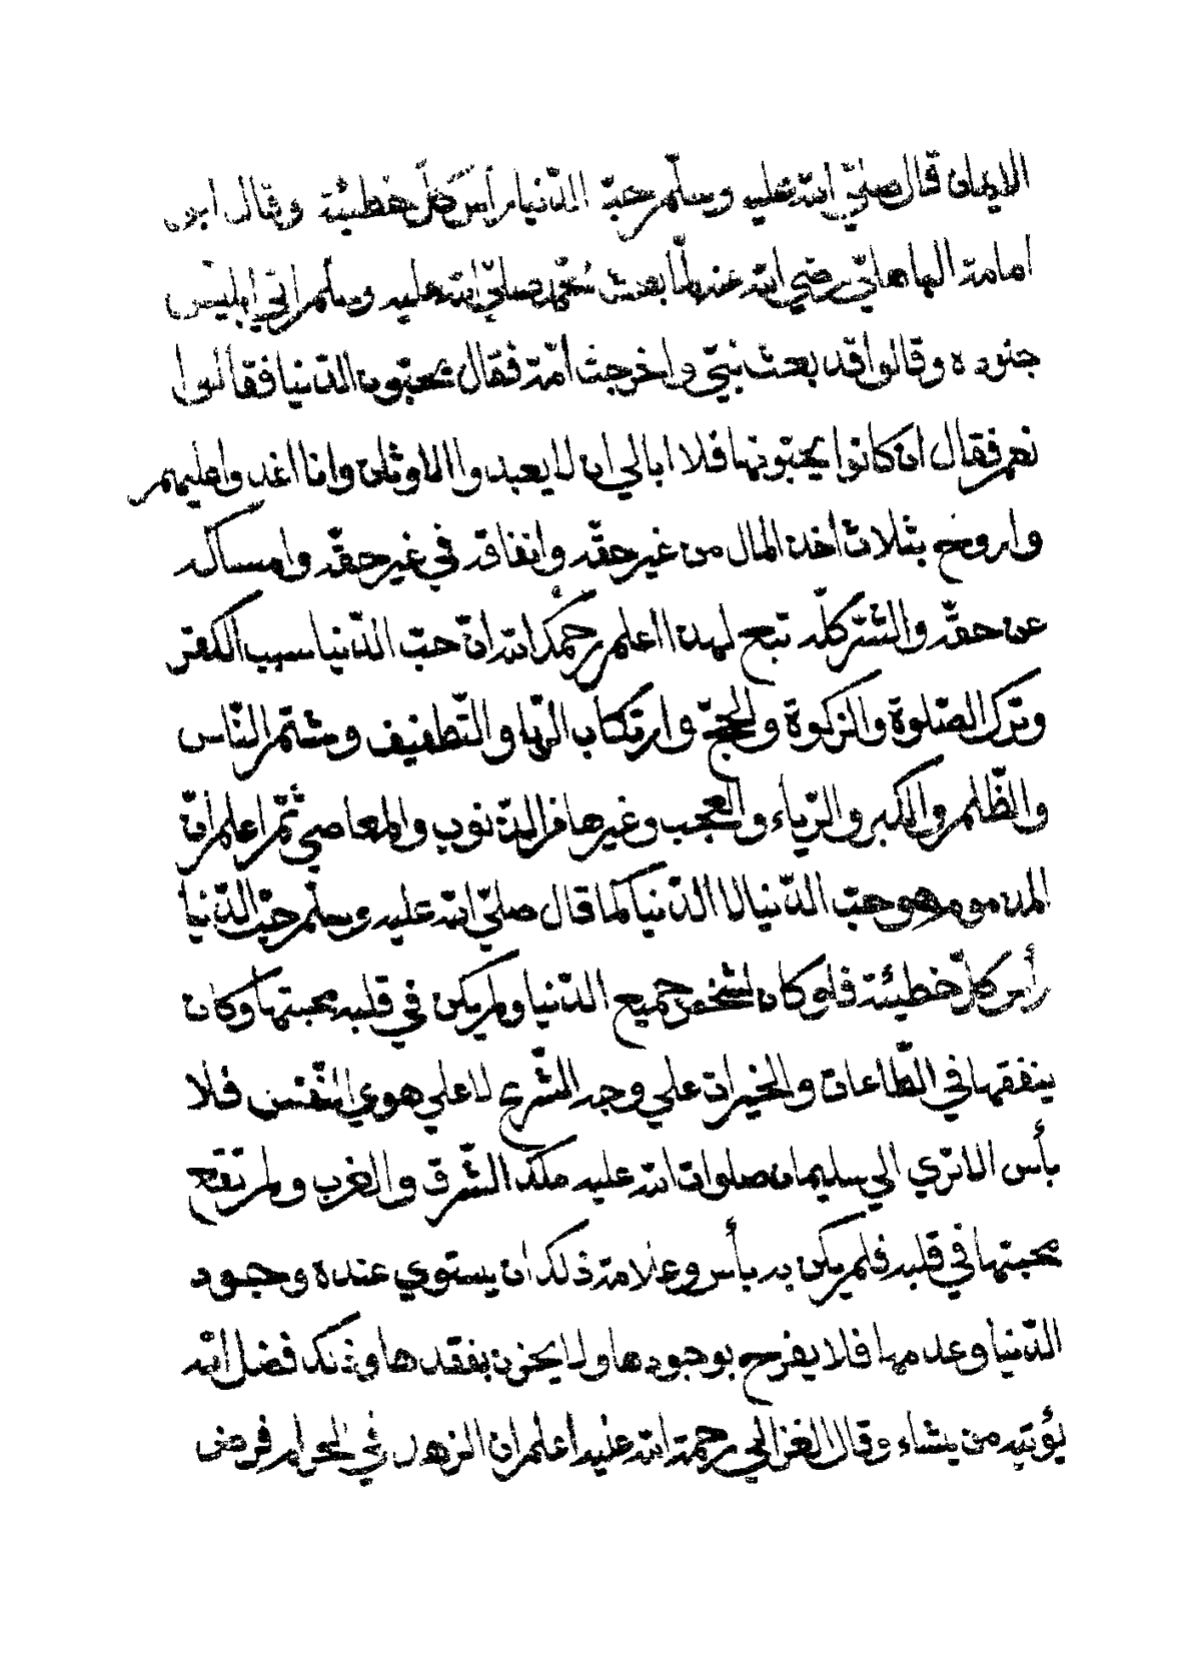 الايمان قال صليّ الله عليه وسلّم حبّ الدّنيا رأس كلّ خطيئة وقال ابو
امامة الباهليّ رضي الله عنه لمّا بعث محمّد صليّ الله عليه وسلّم اتي ابليس
جنوده وقالوا قد بعث نبيّ واخرجت امّة فقال يحبّون الدّنيا فقالوا
نعم فقال ان كانوا يحبّونها فلا ابالي ان لا يعبدوا الاوثان وانا اغدوا عليهم
واروح بثلاث اخذ المال من غير حقّه وانفاقه في غير حقّه وامساكه
عن حقّه والشّر كلّه تبع لهذا اعلم رحمك الله انّ حبّ الدّنيا سبب الكفر
وترك الصّلوة والزكوة والحجّ وارتكاب الرّبا والتّطفيف وشتم النّاس
والظّلم والكبر والرّياء والعجب وغيرها من الذّنوب والمعاصي ثمّ اعلم انّ
المذموم هو حبّ الدّنيا لا الدّنيا كما قال صليّ الله عليه وسلّم حبّ الدّنيا
رأس كلّ خطيئة فلو كان لشخص جميع الدّنيا ولم يكن في قلبه محبتها وكان
ينفقها في الطّاعات والخيرات علي وجه الشّرع لا علي هوي النّفس فلا
بأس الا تري الي سليمان صلوات الله عليه ملك الشّرق والغرب ولم تقع
محبتها في قلبه فلم يكن به بأس وعلامة ذلك ان يستوي عنده وجود
الدّنيا وعدمها فلا يفرح بوجودها ولا يحزن بفقدها وذلك فضل الله
يؤتيه من يشاء وقال الغزالي رحمة الله عليه اعلم ان الزهد في الحرام فرض